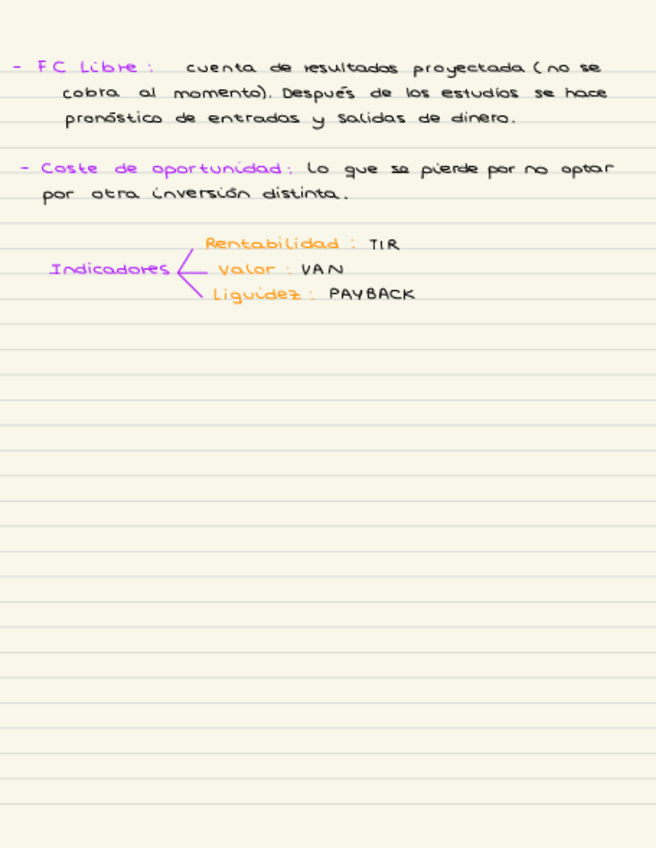 - FC Libre: cuenta de resultados proyectada (no se
cobra al momento). Después de los estudios se hace
pronóstico de entradas y salidas de dinero.
- Coste de oportunidad: lo que se pierde por no optar
por otra inversión distinta.
Rentabilidad: TIR
Indicadores Valor: VAN
Liquidez: PAYBACK